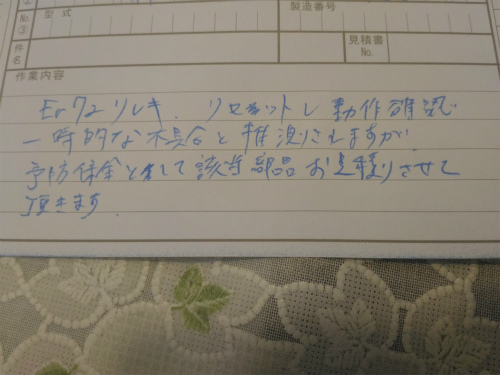 No.③ 型式 製造番号
件名 見積書No.
作業内容
Er72リレキ. リセットし動作確認
一時的な不具合と推測されますが
予防保全として該当部品お見積りさせて
頂きます.